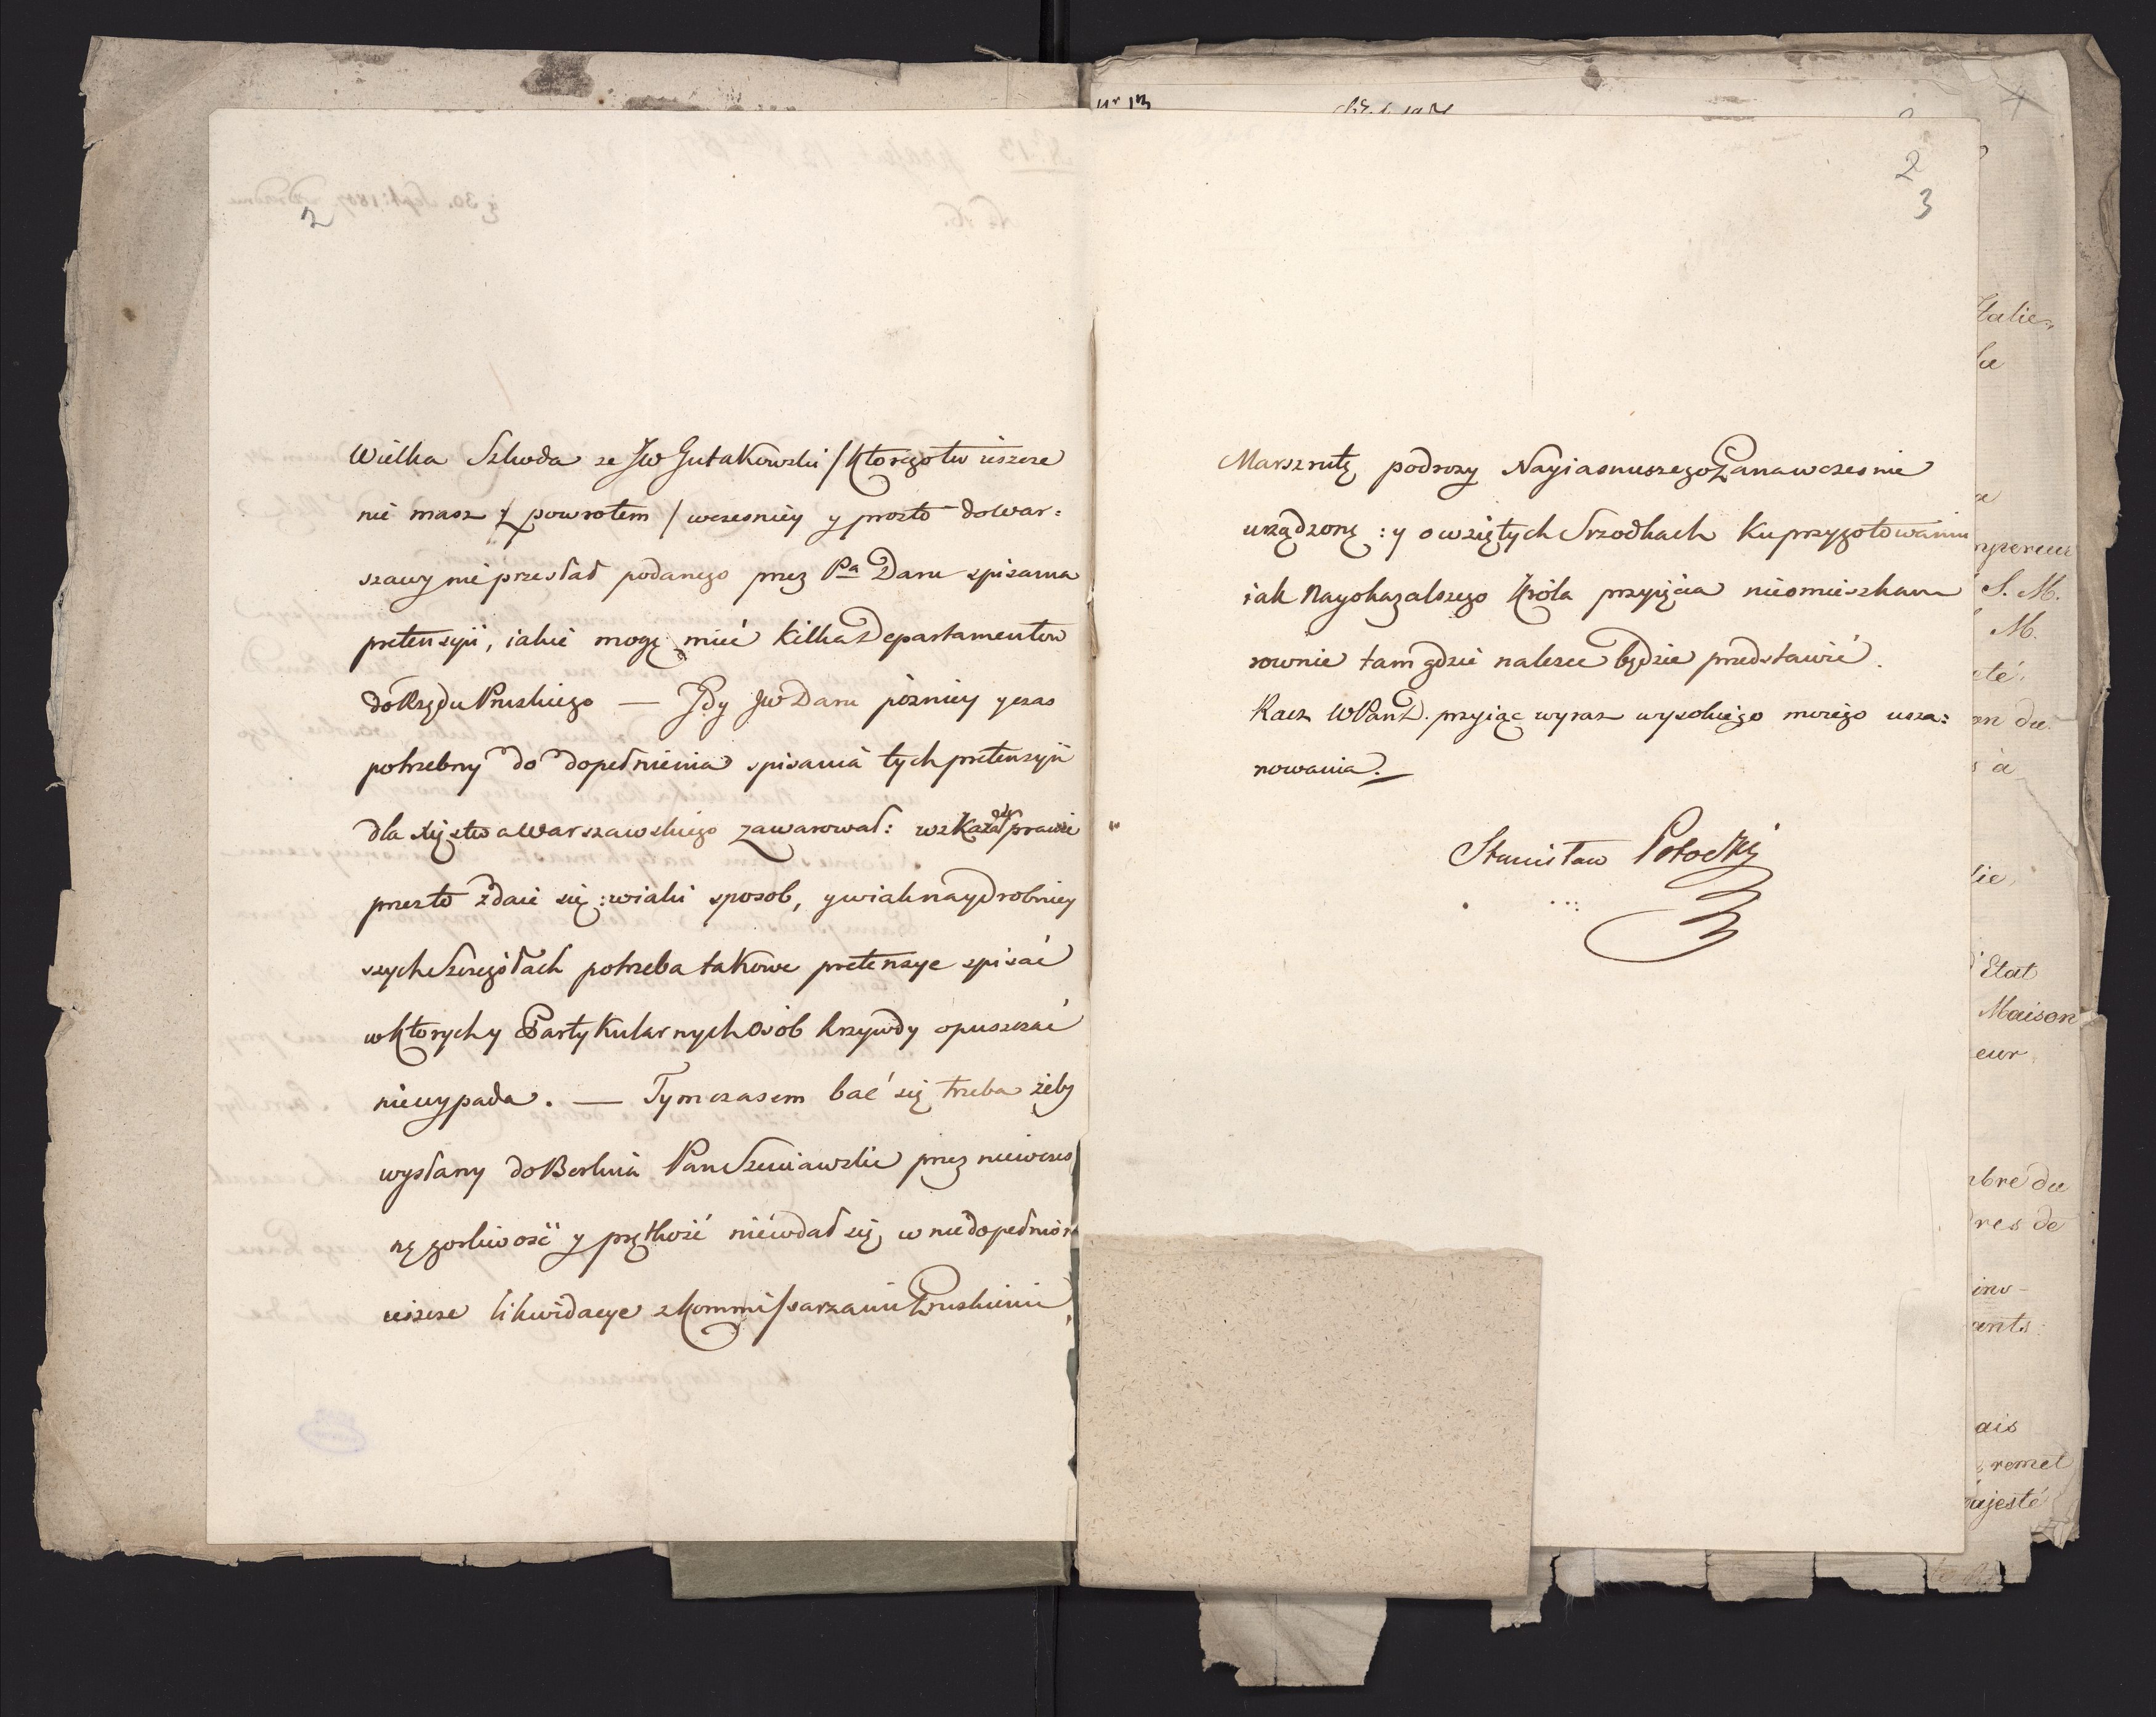 2
Wielka Szkoda ze JW Gutakowski / Którego tu ieszcze
nie masz z powrotem / wczesniey y prosto do War:
szawy nie przesłał podanego przez Pa Daru spisania
pretensyji, iakie mogą mieć kilka Departamentow
do Rządu Pruskiego — Gdy JW Daru pózniey y czas
potrzebny do dopełnienia spisania tych pretensyji
dla Xięstwa Warszawskiego zawarował: wskazał prawie
przesto zdaie się: w iaki sposob, y w iak naydrobniey
szych Szczegółach potrzeba takowe pretensye spisać
w Ktorych y Partykularnych Osób krzywdy opuszczać
nie wypada. — Tymczasem bać się trzeba żeby
wysłany do Berlina Pan Szeniawski przez niewczes
ną gorliwość y prętkość nie wdał się w niedopełnion
ieszcze likwidacye z Kommissarzami Pruskiemi
2
3
Marszrutę podrozy Nayiasnieszego Pana wczesnie
urządzoną: y o wziętych Srzodkach Ku przygotowaniu
iak Nayokazalszego Króla przyięcia nieomieszkam
rownie tam gdzie nalezeć będzie przedstawić.
Racz WPan D. przyiąć wyraz wysokiego moiego usza:
nowania.
Stanisław Potocki
Italie,
la
S. M.
M.
été,
on du
à
lie
d'Etat
Maison
eur
bre du
res de
ents
ais
remet
ajesté